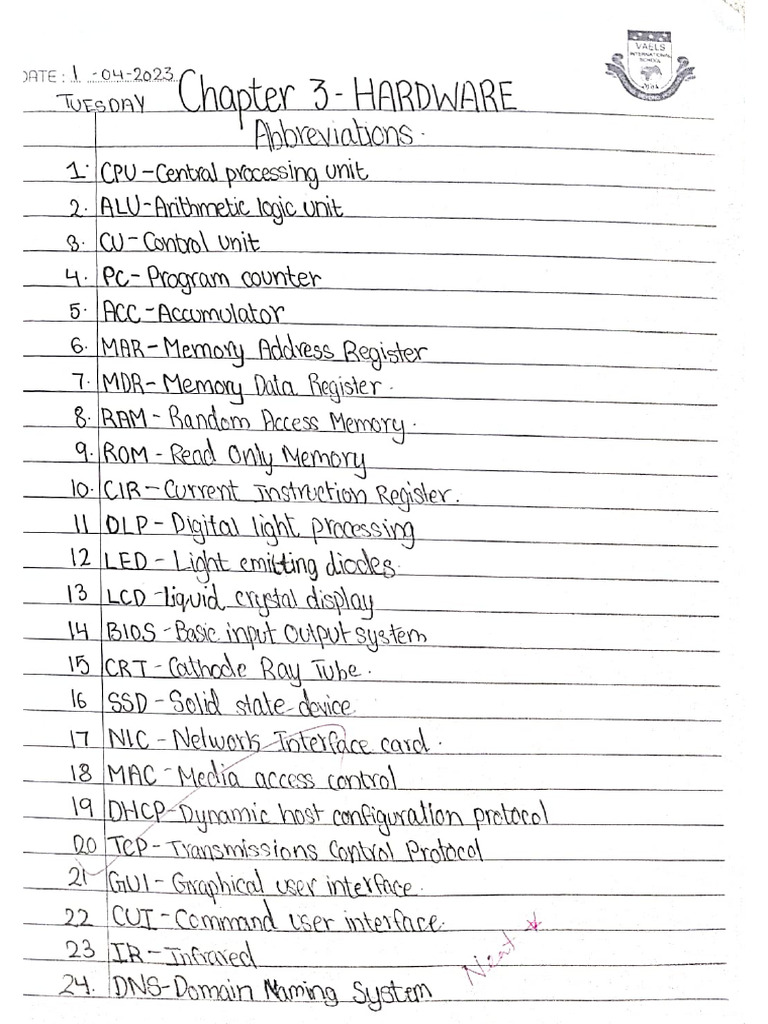 VAELS
INTERNATIONAL
SCHOOL
DATE : 1 -04-2023
TUESDAY
Chapter 3 - HARDWARE
Abbreviations.
1. CPU - Central processing unit
2. ALU - Arithmetic logic unit
3. CU - Control unit
4. PC - Program counter
5. ACC - Accumulator
6. MAR - Memory Address Register
7. MDR - Memory Data Register.
8. RAM - Random Access Memory.
9. ROM - Read Only Memory
10. CIR - Current Instruction Register.
11 DLP - Digital light processing
12 LED - Light emitting diodes.
13 LCD - liquid crystal display
14 BIOS - Basic input output system
15 CRT - Cathode Ray Tube.
16 SSD - Solid state device
17 NIC - Network Interface card.
18 MAC - Media access control
19 DHCP - Dynamic host configuration protocol
20 TCP - Transmissions Control Protocol
21 GUI - Graphical user interface.
22 CUI - Command user interface.
23 IR - Infrared
Neat
24. DNS - Domain Naming System